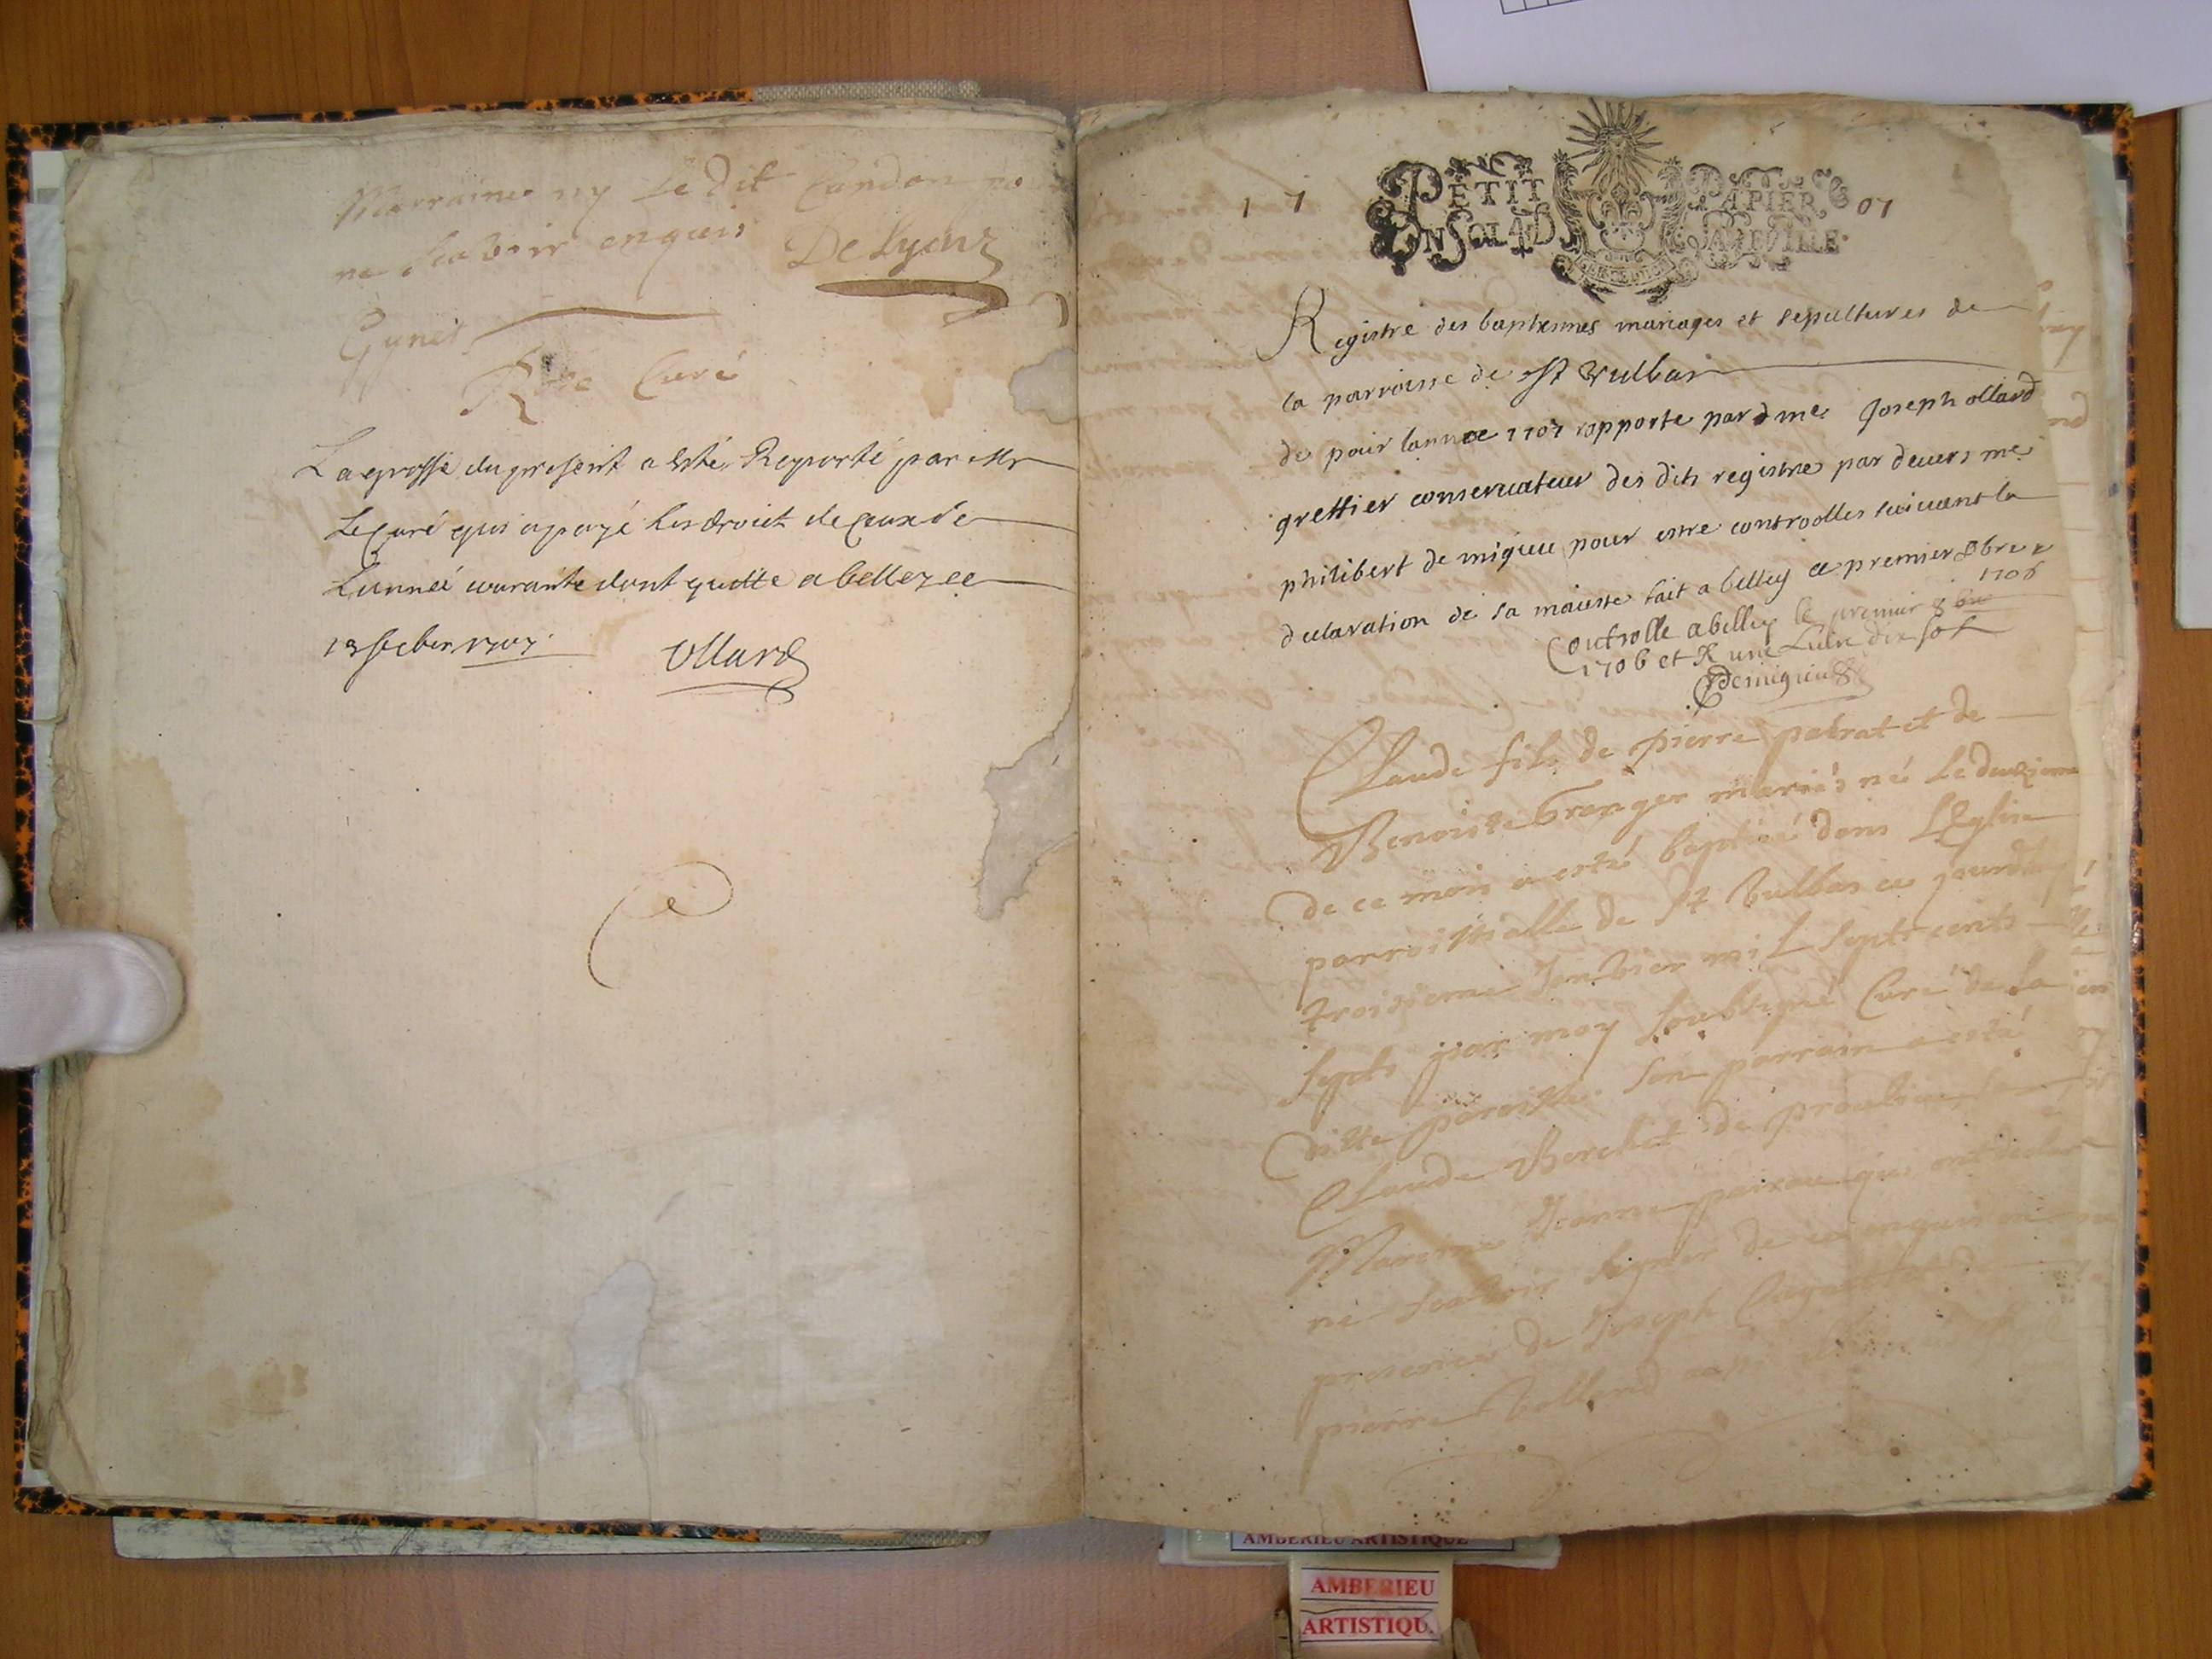 Marraine ny le dit Candon
ne scavoir enquis De Lyonz
Curé
La grosse du present a esté Reporté par Mr
Le Curé qui a payé les droict de ceux de
Lannée courante dont quitte a belley ce
1707
Ollard
1 7 07
PETIT PAPIER
UN SOL 4 D LA FEUILLE
Registre des baptesmes mariages et sepultures de
la parroisse de St Vulbas
de pour lannee 1707 rapporte par me Joseph ollard
greffier conservateur des dits registre par devers me
philibert de migieu pour estre controolles suivant la
declaration de sa maieste fait a belley ce premier 8bre
1706
Controlle a belley le premier 8bre
1706 et R une Livre dix sols
Demigieu
Claude fils de pierre patrat et de
Benoiste Granger mariés né le deuxieme
de ce mois a esté baptisé dans LEglise
parroissialle de St Vulbas ce jourdhuy
troisieme Janvier mil Septs cents
Septs par moy soubsigné Curé de la
ditte paroisse son parrain a esté
Claude Berchet de
Marraine Jeanne qui ont declaré
ne scavoir signer de ce enquis en
presence de Joseph
pierre
AMBERIEU ARTISTIQUE
AMBERIEU
ARTISTIQU